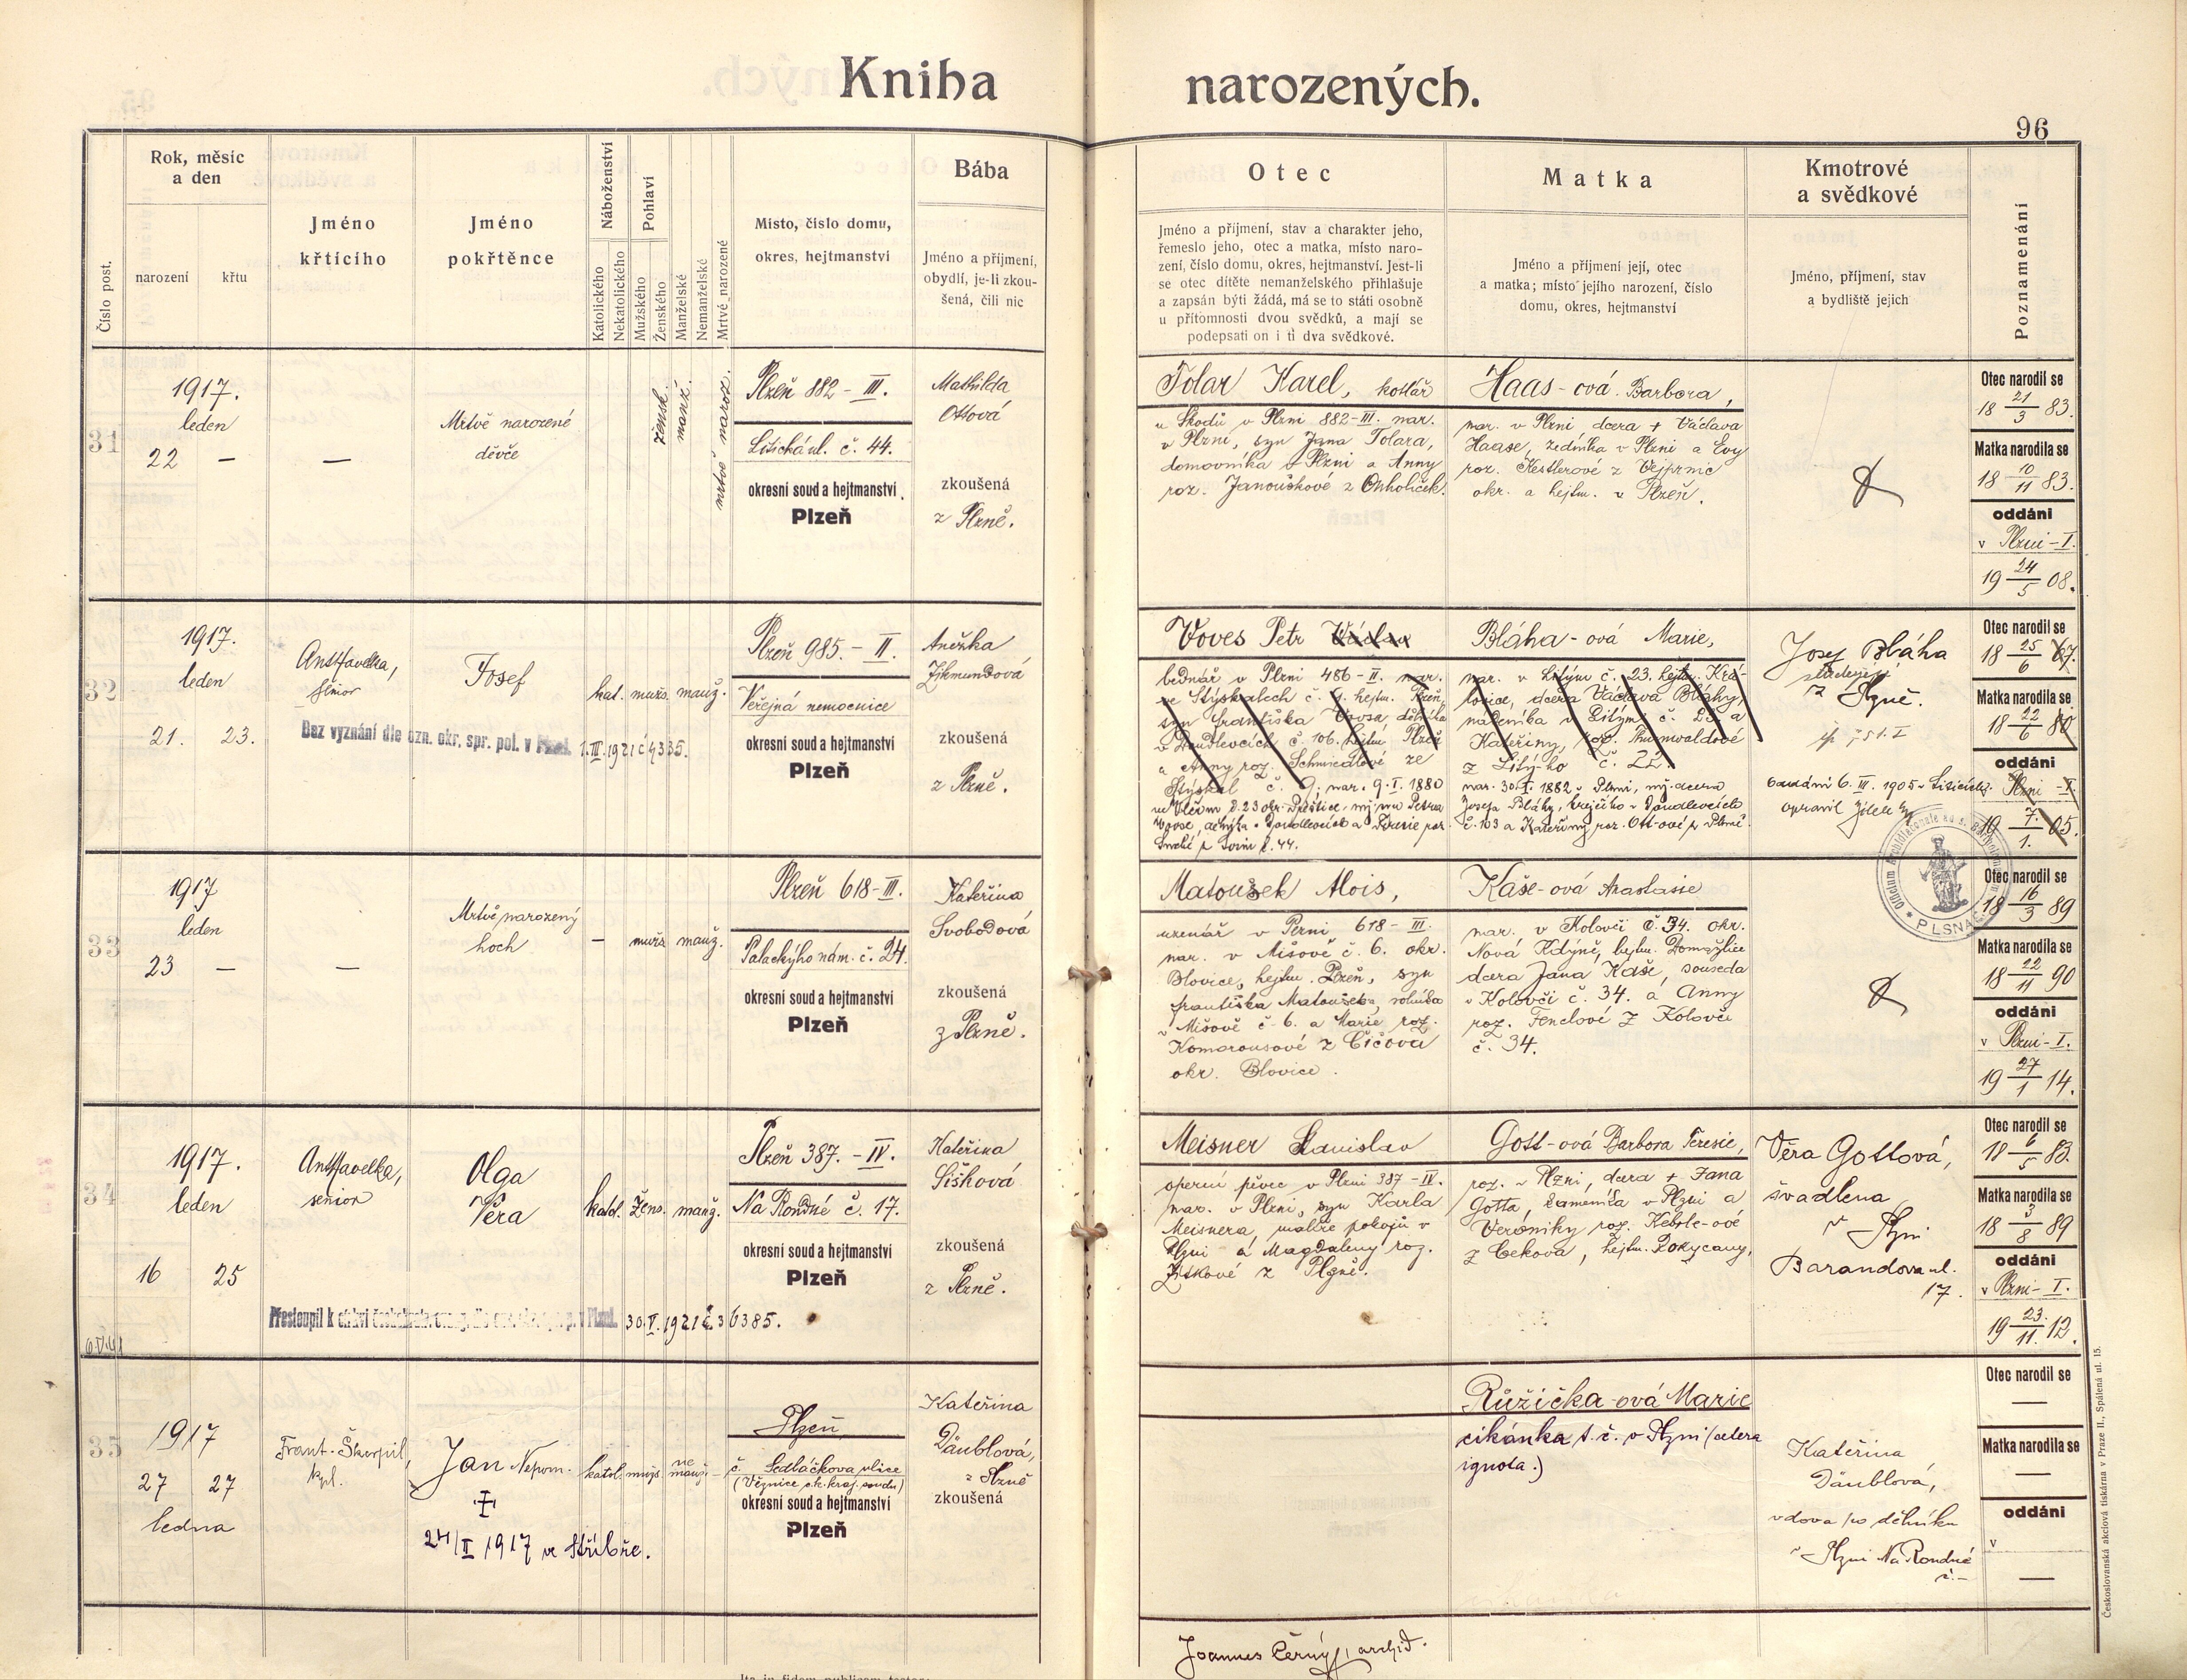 Kniha narozených.
96
Číslo post.
Rok, měsíc
a den
narození
křtu
Jméno
křtícího
Jméno
pokřtěnce
Náboženství
Katolického
Nekatolického
Pohlaví
Mužského
Ženského
Manželské
Nemanželské
Mrtvě narozené
Místo, číslo domu,
okres, hejtmanství
Bába
Jméno a příjmení,
obydlí, je-li zkou-
šená, čili nic
Otec
Jméno a příjmení, stav a charakter jeho,
řemeslo jeho, otec a matka, místo naro-
zení, číslo domu, okres, hejtmanství. Jest-li
se otec dítěte nemanželského přihlašuje
a zapsán býti žádá, má se to státi osobně
u přítomnosti dvou svědků, a mají se
podepsati on i ti dva svědkové.
Matka
Jméno a příjmení její, otec
a matka; místo jejího narození, číslo
domu, okres, hejtmanství
Kmotrové
a svědkové
Jméno, příjmení, stav
a bydliště jejich
Poznamenání
31
1917.
leden
22 —
—
Mrtvě narozené
děvče
žensk.
manž.
mrtvě naroz.
Plzeň 882 - III.
Lisická ul. č. 44.
okresní soud a hejtmanství
Plzeň
Mathilda
Ottová
zkoušená
z Plzně.
Tolar Karel, kotlář
u Škodů v Plzni 882-III. nar.
v Plzni, syn Jana Tolara,
domovníka v Plzni a Anny
roz. Janouškové z Chholiček.
Haas-ová Barbora,
nar. v Plzni dcera + Václava
Haase, zedníka v Plzni a Evy
roz. Kestlerové z Vejprnic
okr. a hejtm. v Plzeň.
Otec narodil se
18 21/3 83.
Matka narodila se
18 10/11 83.
oddáni
v Plzni - I.
19 24/5 08.
32
1917.
leden
21. 23.
Ant. Havelka,
senior
Josef
kat. muž. manž.
Bez vyznání dle ozn. okr. spr. pol. v Plzni. 1. III. 1921 č. 4335.
Plzeň 985. - II.
Veřejná nemocnice
okresní soud a hejtmanství
Plzeň
Anežka
Zikmundová
zkoušená
z Plzně.
Voves Petr Václav
bednář v Plzni 486 - II. nar.
ve Stýskalech č. 9. hejtm. Plzeň,
syn Františka Vovsa, dělníka
v Doudlevcích č. 106. hejtm. Plzeň
a Anny roz. Schmiedlové ze
Stýskal č. 9; nar. 9. I. 1880
Bláha-ová Marie,
nar. v Litýni č. 23. hejtm. Krá-
lovice, dcera Václava Bláhy,
Kateřiny, roz.
z Litýho č. 22.
nar. 30. I. 1882 v Plzni, mj. dcera
Josefa Bláhy, krejčího v Doudlevcích
č. 103 a Kateřiny roz. Ott-ové z Plzně.
Josef Bláha
z Plzně.
oddáni 6. III. 1905 v
opravil
Otec narodil se
18 25/6 67.
Matka narodila se
18 22/6 80
oddáni
v Plzni - I.
19 7./1. 05.
PLSNAE
33
1917
leden
23 —
—
Mrtvě narozený
hoch
—
muž. manž.
Plzeň 618 - III.
Palackýho nám. č. 24.
okresní soud a hejtmanství
Plzeň
Kateřina
Svobodová
zkoušená
z Plzně.
Matoušek Alois,
uzenář v Plzni 618 - III.
nar. v Mišově č. 6. okr.
Blovice, hejtm. Plzeň, syn
Františka Matouška, rolníka
v Mišově č. 6. a Marie roz.
Komorousové z Čičova
okr. Blovice.
Kaše-ová Anastasie
nar. v Kolovči č. 34. okr.
Nová Kdýně, hejtm. Domažlice
dcera Jana Kaše, souseda
v Kolovči č. 34. a Anny
roz. Fenclové z Kolovče
č. 34.
Otec narodil se
18 16/3 89
Matka narodila se
18 22/11 90
oddáni
v Plzni - I.
19 27/1 14.
34
1917.
leden
16 25
Ant. Havelka,
senior
Olga
Věra
katol. žens. manž.
30. V. 1921 č. 36385.
Plzeň 387. - IV.
Na Rondné č. 17.
okresní soud a hejtmanství
Plzeň
Kateřina
Šišková
zkoušená
z Plzně.
Meisner Stanislav
operní pěvec v Plzni 387 - IV.
nar. v Plzni, syn Karla
Meisnera, malíře pokojů v
Plzni a Magdaleny roz.
Žitkové z Plzně.
Gott-ová Barbora Terezie,
roz. v Plzni, dcera + Jana
Gotta, kameníka v Plzni a
Veroniky roz. Keberle-ové
z Cekova, hejtm. Rokycany,
Věra Gottová,
švadlena
v Plzni
Barandova ul.
17.
Otec narodil se
18 6/5 83.
Matka narodila se
18 3/8 89
oddáni
v Plzni - I.
19 23./11. 12.
35
1917
27 27
ledna
Frant. Škorpil,
kpl.
Jan Nepom.
katol. muž. ne manž.
24/II 1917 ve Stříbře.
Plzeň
č. Sedláčkova ulice
(Věznice c. k. kraj. soudu)
okresní soud a hejtmanství
Plzeň
Kateřina
Däublová,
z Plzně
zkoušená
Růžička-ová Marie
cikánka t. č. v Plzni (cetera
ignota.)
Kateřina
Däublová,
vdova po dělníku
v Plzni Na Rondné
č. —
Otec narodil se
—
Matka narodila se
—
oddáni
v
—
Joannes Černý, archid.
Ita in fidem publicam testor:
Československá akciová tiskárna v Praze II., Spálená ul. 15.